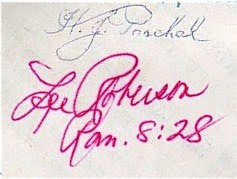 H. J. Paschal
Lee Roberson
Rom. 8:28